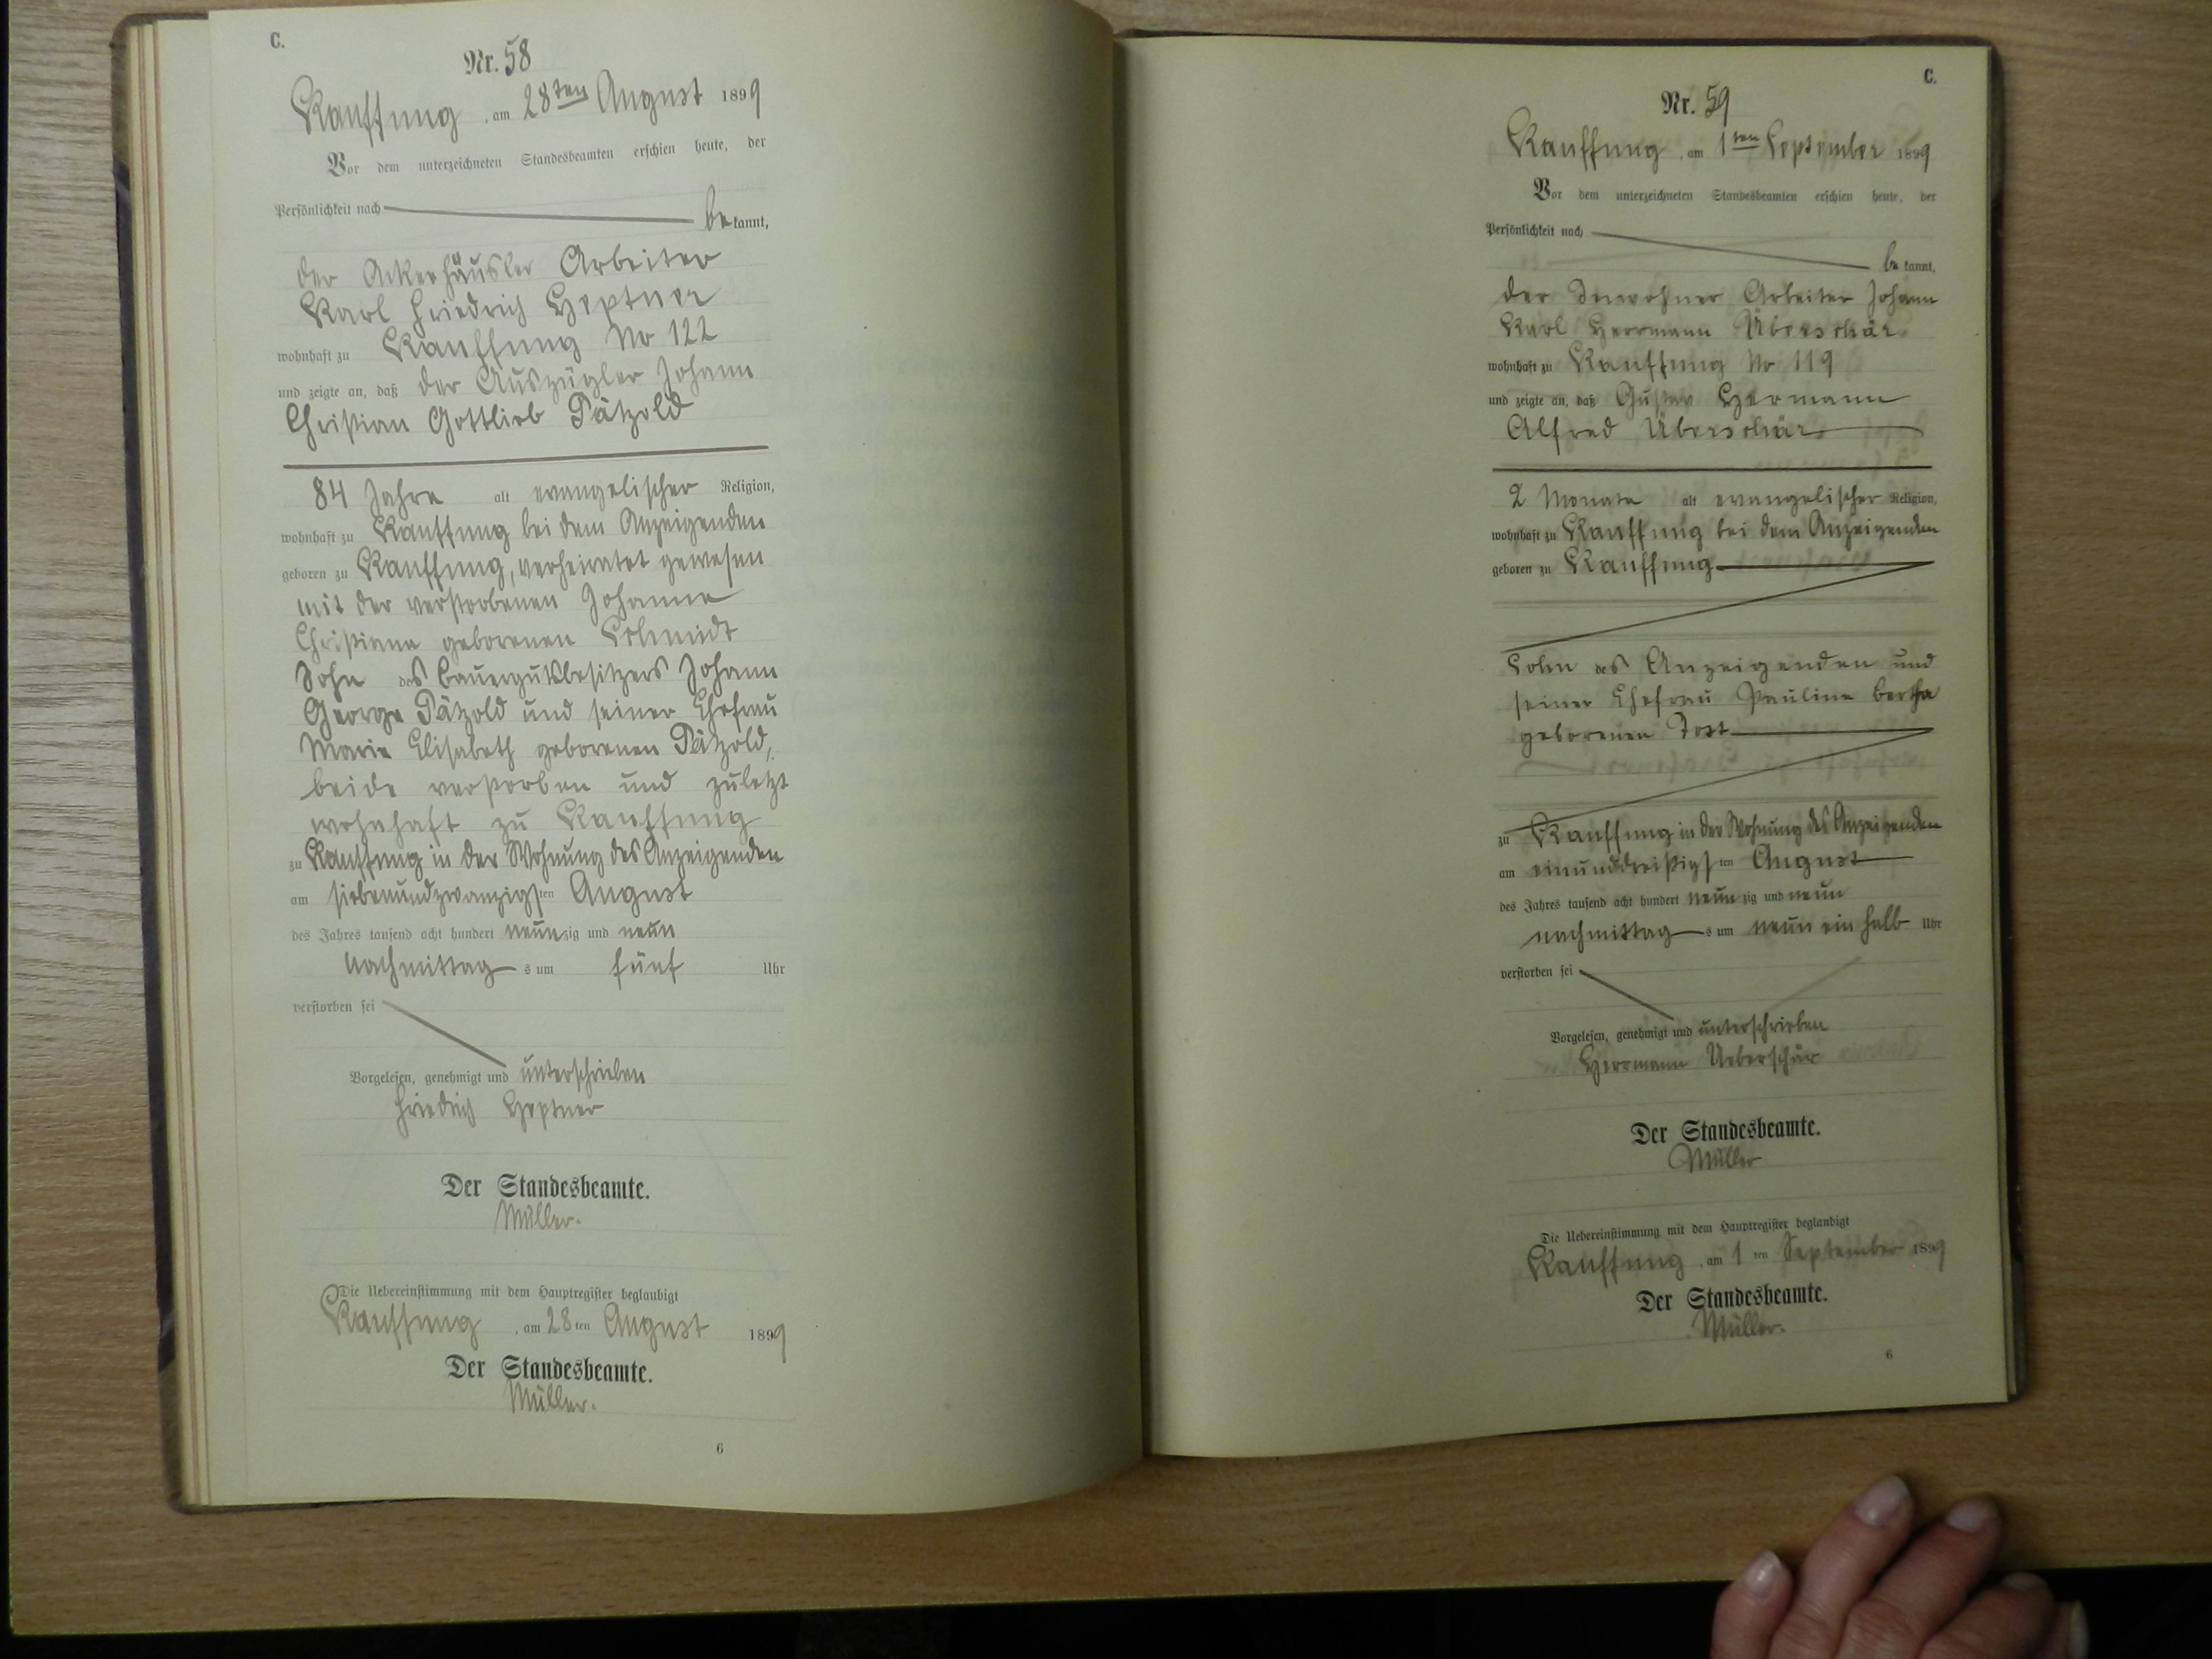 C.
Nr. 58
Kauffung, am 28ten August 1899
Vor dem unterzeichneten Standesbeamten erschien heute, der
Persönlichkeit nach
bekannt,
der Ackerhäusler Arbeiter
Karl Friedrich Heptner
wohnhaft zu Kauffung No 122
und zeigte an, daß der Auszügler Johann
Christian Gottlieb Pätzold
84 Jahre alt evangelischer Religion,
wohnhaft zu Kauffung bei dem Anzeigenden
geboren zu Kauffung, verheiratet gewesen
mit der verstorbenen Johanne
Christiane geborenen Schmidt
Sohn des Bauergutsbesitzers Johann
George Pätzold und seiner Ehefrau
Marie Elisabeth geborenen Pätzold,
beide verstorben und zuletzt
wohnhaft zu Kauffung
zu Kauffung in der Wohnung des Anzeigenden
am siebenundzwanzigsten August
des Jahres tausend acht hundert neunzig und neun
Nachmittags um fünf Uhr
verstorben sei
Vorgelesen, genehmigt und unterschrieben
Friedrich Heptner
Der Standesbeamte.
Müller.
Die Uebereinstimmung mit dem Hauptregister beglaubigt
Kauffung, am 28ten August 1899
Der Standesbeamte.
Müller.
6
C.
Nr. 59
Kauffung, am 1ten September 1899
Vor dem unterzeichneten Standesbeamten erschien heute, der
Persönlichkeit nach
bekannt,
der Inwohner Arbeiter Johann
Karl Herrmann Überschär
wohnhaft zu Kauffung No 119
und zeigte an, daß Gustav Hermann
Alfred Überschär
2 Monate alt evangelischer Religion,
wohnhaft zu Kauffung bei dem Anzeigenden
geboren zu Kauffung
Sohn des Anzeigenden und
seiner Ehefrau Pauline Bertha
geborenen Tost
zu Kauffung in der Wohnung des Anzeigenden
am einunddreißigsten August
des Jahres tausend acht hundert neunzig und neun
nachmittags um neun ein halb Uhr
verstorben sei
Vorgelesen, genehmigt und unterschrieben
Herrmann Ueberschär
Der Standesbeamte.
Müller
Die Uebereinstimmung mit dem Hauptregister beglaubigt
Kauffung, am 1ten September 1899
Der Standesbeamte.
Müller.
6